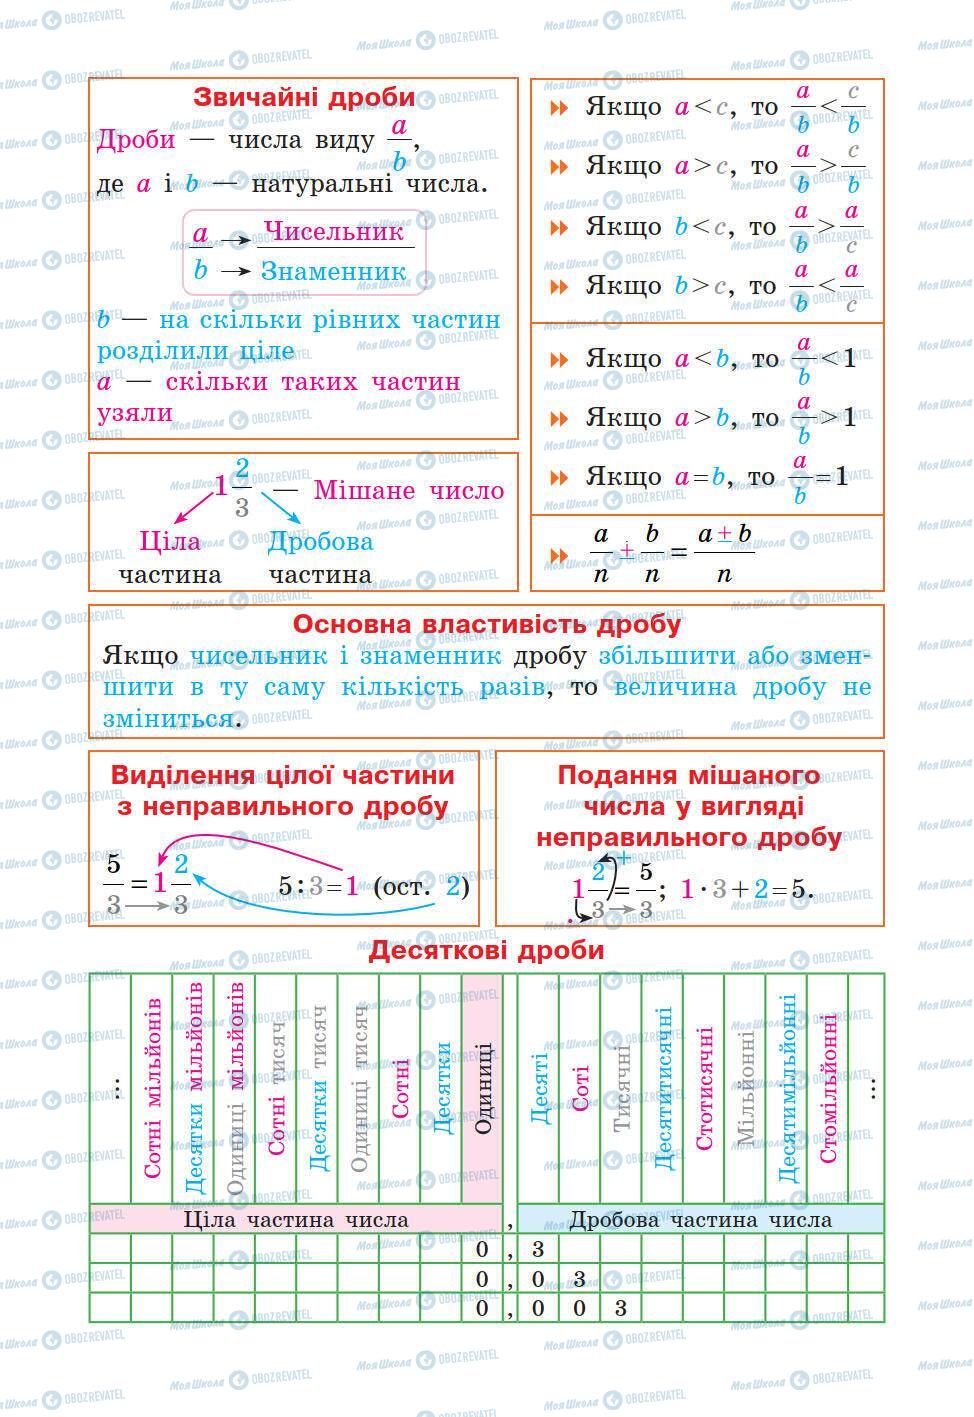 Звичайні дроби
Дроби — числа виду a/b,
де a і b — натуральні числа.
a → Чисельник
b → Знаменник
b — на скільки рівних частин
розділили ціле
a — скільки таких частин
узяли
1 2/3 — Мішане число
Ціла частина
Дробова частина
Якщо a < c, то a/b < c/b
Якщо a > c, то a/b > c/b
Якщо b < c, то a/b > a/c
Якщо b > c, то a/b < a/c
Якщо a < b, то a/b < 1
Якщо a > b, то a/b > 1
Якщо a = b, то a/b = 1
a/n ± b/n = (a ± b)/n
Основна властивість дробу
Якщо чисельник і знаменник дробу збільшити або змен-
шити в ту саму кількість разів, то величина дробу не
зміниться.
Виділення цілої частини
з неправильного дробу
5/3 = 1 2/3 5 : 3 = 1 (ост. 2)
Подання мішаного
числа у вигляді
неправильного дробу
+
1 2/3 = 5/3; 1 · 3 + 2 = 5.
·
Десяткові дроби
...
Сотні мільйонів
Десятки мільйонів
Одиниці мільйонів
Сотні тисяч
Десятки тисяч
Одиниці тисяч
Сотні
Десятки
Одиниці
Десяті
Соті
Тисячні
Десятитисячні
Стотисячні
Мільйонні
Десятимільйонні
Стомільйонні
...
Ціла частина числа , Дробова частина числа
0 , 3
0 , 0 3
0 , 0 0 3
МояШкола OBOZREVATEL